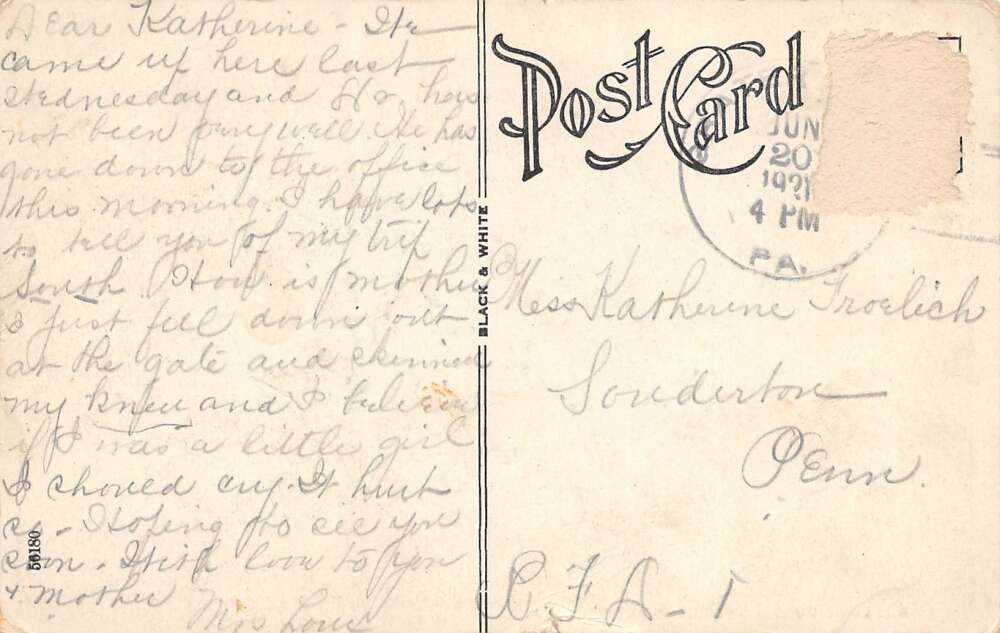 Dear Katherine - We
came up here last
Wednesday and Mr has
not been very well. He has
gone down to the office
this morning. I have lots
to tell you of my trip
South. How is mother
I just fell down out
at the gate and skinned
my knee and I believe
if I was a little girl
I should cry. It hurt
so - Hoping to see you
soon. With love to you
& mother
Mrs
56180
BLACK & WHITE
Post Card
JUN
20
1921
4 PM
PA.
Miss Katherine Froelich
Souderton
Penn.
R F D - 1